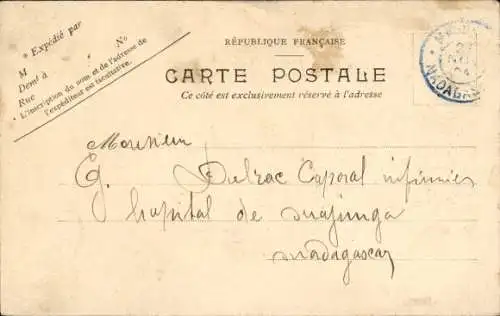 * Expédié par
M
Nº
Demt à
Rue
* L'inscription du nom et de l'adresse de
l'expéditeur est facultative.
RÉPUBLIQUE FRANÇAISE
CARTE POSTALE
Ce côté est exclusivement réservé à l'adresse
Monsieur
G. Dulzac Caporal infirmier
hopital de majunga
Madagascar